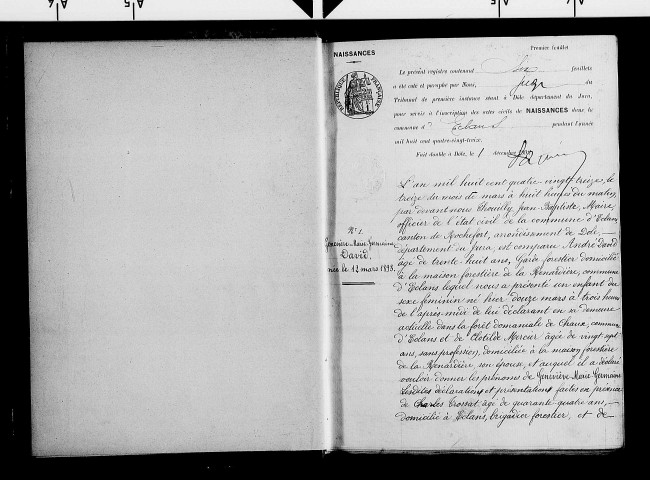 NAISSANCES
Premier feuillet
Le présent registre contenant Six feuillets
a été coté et paraphé par Nous, juge du
Tribunal de première instance séant à Dôle département du Jura,
pour servir à l'inscription des actes civils de NAISSANCES dans la
commune d' Eclans pendant l'année
mil huit cent quatre-vingt-treize.
Fait double à Dôle, le 1 décembre
RÉPUBLIQUE FRANÇAISE
N° 1
Geneviève Marie Germaine
David,
née le 12 mars 1893.
L'an mil huit cent quatre-vingt treize, le
treize du mois de mars à huit heures du matin,
par devant nous Chouilly Jean-Baptiste, Maire,
officier de l'état civil de la commune d'Eclans
canton de Rochefort, arrondissement de Dole,
département du Jura, est comparu André David
âgé de trente huit ans, Garde forestier domicilié
à la maison forestière de la Renardière, commune
d'Eclans lequel nous a présenté un enfant du
sexe féminin né hier douze mars à trois heures
de l'après-midi de lui déclarant en sa demeure
actuelle dans la forêt domaniale de Chaux, commune
d'Eclans et de Clotilde Mercier âgée de vingt sept
ans, sans profession, domiciliée à la maison forestière
de la Renardière, son épouse, et auquel il a déclaré
vouloir donner les prénoms de Geneviève Marie Germaine
Lesdites déclarations et présentations faites en présence
de Charles Crossat, âgé de quarante quatre ans,
domicilié à Eclans, brigadier forestier, et de